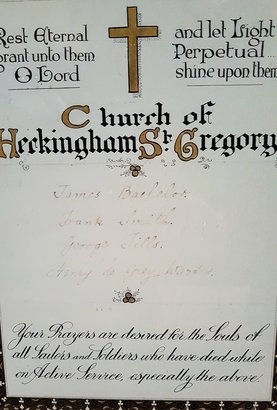 Rest Eternal
grant unto them
O Lord
and let Light
Perpetual
shine upon them
Church of
Heckingham St. Gregory
James Bachelor
Frank Smith
George Tills
Henry de Grey
Your Prayers are desired for the Souls of
all Sailors and Soldiers who have died while
on Active Service, especially the above.